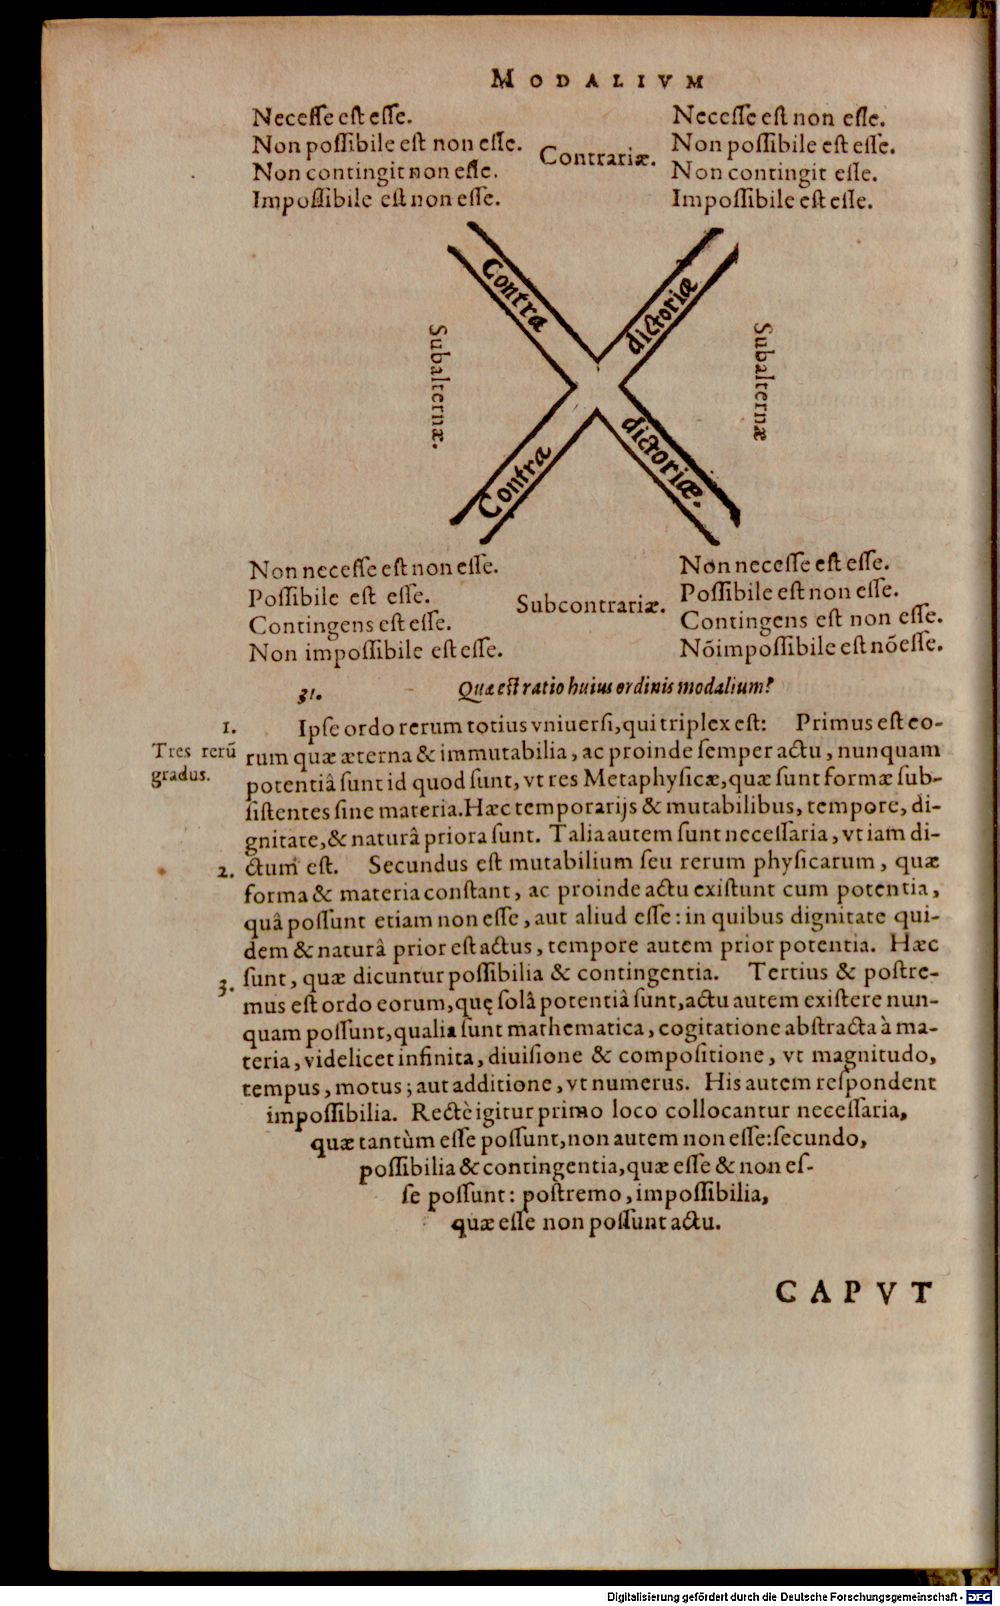 MODALIVM
Neceſſe eſt eſſe.
Non poſſibile eſt non eſſe.
Non contingit non eſſe.
Impoſſibile eſt non eſſe.
Contrariæ.
Neceſſe eſt non eſſe.
Non poſſibile eſt eſſe.
Non contingit eſſe.
Impoſſibile eſt eſſe.
Contra
dictoriæ
Subalternæ.
Subalternæ
Contra
dictoriæ.
Non neceſſe eſt non eſſe.
Poſſibile eſt eſſe.
Contingens eſt eſſe.
Non impoſſibile eſt eſſe.
Subcontrariæ.
Non neceſſe eſt eſſe.
Poſſibile eſt non eſſe.
Contingens eſt non eſſe.
Nõ impoſſibile eſt nõ eſſe.
31. Quæ eſt ratio huius ordinis modalium?
1. Ipſe ordo rerum totius vniuerſi, qui triplex eſt: Primus eſt eo-
Tres rerũ
gradus.
rum quæ æterna & immutabilia, ac proinde ſemper actu, nunquam
potentiâ ſunt id quod ſunt, vt res Metaphyſicæ, quæ ſunt formæ ſub-
ſiſtentes ſine materia. Hæc temporarijs & mutabilibus, tempore, di-
gnitate, & naturâ priora ſunt. Talia autem ſunt neceſſaria, vt iam di-
2. ctum eſt. Secundus eſt mutabilium ſeu rerum phyſicarum, quæ
forma & materia conſtant, ac proinde actu exiſtunt cum potentia,
quâ poſſunt etiam non eſſe, aut aliud eſſe: in quibus dignitate qui-
dem & naturâ prior eſt actus, tempore autem prior potentia. Hæc
3. ſunt, quæ dicuntur poſſibilia & contingentia. Tertius & poſtre-
mus eſt ordo eorum, quę ſolâ potentiâ ſunt, actu autem exiſtere nun-
quam poſſunt, qualia ſunt mathematica, cogitatione abſtracta à ma-
teria, videlicet infinita, diuiſione & compoſitione, vt magnitudo,
tempus, motus; aut additione, vt numerus. His autem reſpondent
impoſſibilia. Rectè igitur primo loco collocantur neceſſaria,
quæ tantùm eſſe poſſunt, non autem non eſſe: ſecundo,
poſſibilia & contingentia, quæ eſſe & non eſ-
ſe poſſunt: poſtremo, impoſſibilia,
quæ eſſe non poſſunt actu.
CAPVT
Digitalisierung gefördert durch die Deutsche Forschungsgemeinschaft - DFG